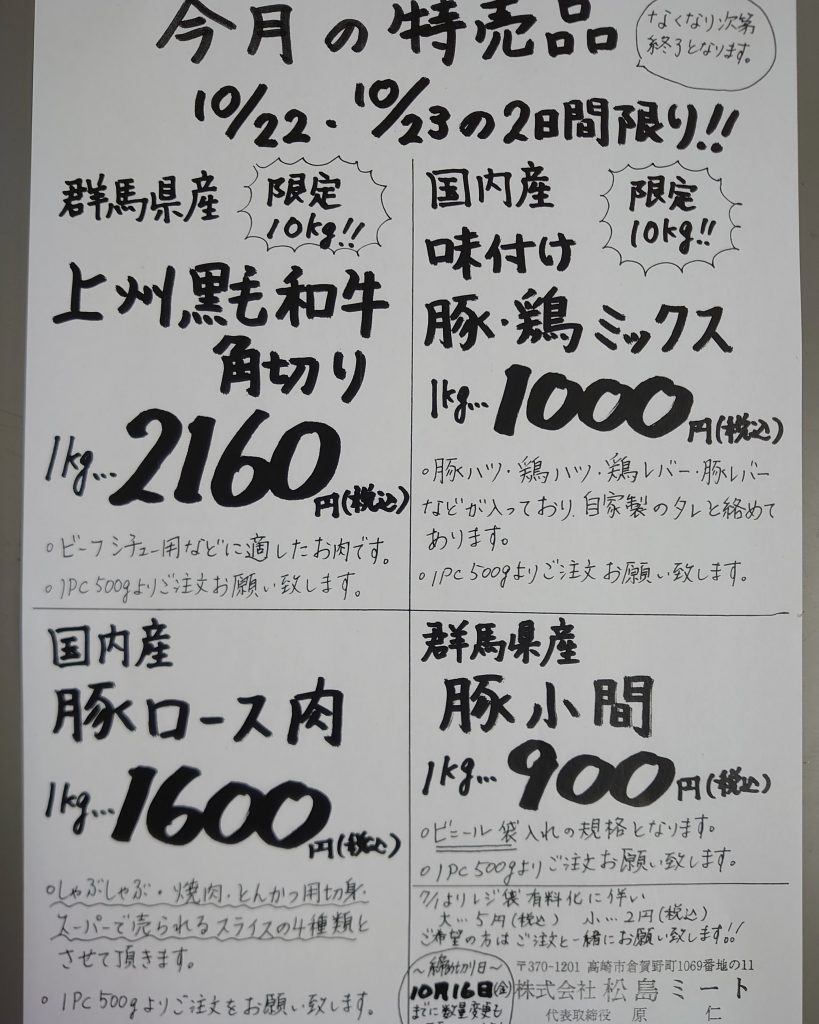 今月の特売品
なくなり次第
終了となります。
10/22・10/23の2日間限り!!
群馬県産
限定
10kg!!
上州黒毛和牛
角切り
1kg…2160円(税込)
○ビーフシチュー用などに適したお肉です。
○1PC500gよりご注文お願い致します。
国内産
限定
10kg!!
味付け
豚・鶏ミックス
1kg…1000円(税込)
○豚ハツ・鶏ハツ・鶏レバー・豚レバー
などが入っており、自家製のタレと絡めて
あります。
○1PC500gよりご注文お願い致します。
国内産
豚ロース肉
1kg…1600円(税込)
○しゃぶしゃぶ・焼肉・とんかつ用切身・
スーパーで売られるスライスの4種類と
させて頂きます。
○1PC500gよりご注文をお願い致します。
群馬県産
豚小間
1kg…900円(税込)
○ビニール袋入れの規格となります。
○1PC500gよりご注文お願い致します。
7/1よりレジ袋有料化に伴い
大…5円(税込) 小…2円(税込)
ご希望の方はご注文と一緒にお願い致します!!
〜締め切り日〜
10月16日(金)
までに数量変更も
〒370-1201 高崎市倉賀野町1069番地の11
株式会社 松島ミート
代表取締役 原 仁